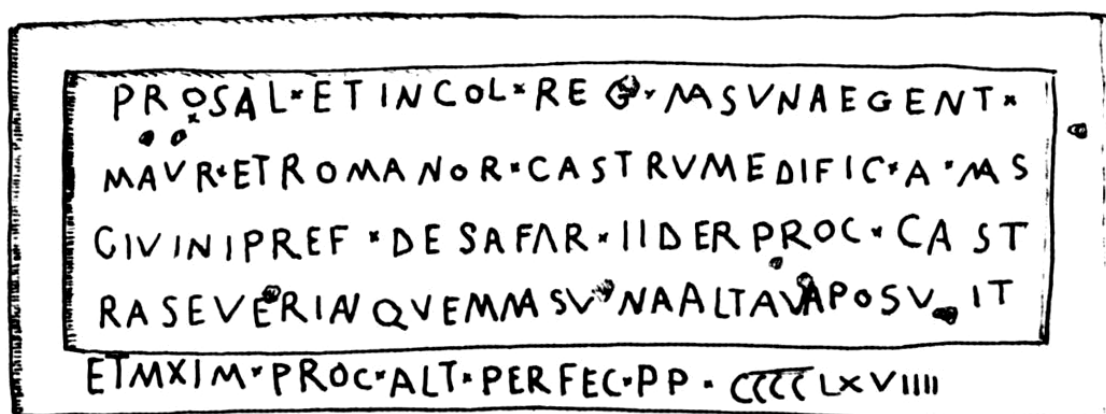 PROSAL×ETINCOL×REG×MASVNAEGENT×
MAVR×ETROMANOR×CASTRVMEDIFIC×A×MAS
GIVINIPREF×DESAFAR×IIDERPROC×CAST
RASEVERIANQVEMMASVNAALTAVAPOSVIT
ETMXIM×PROC×ALT×PERFEC×PP× CCCCLXVIIII